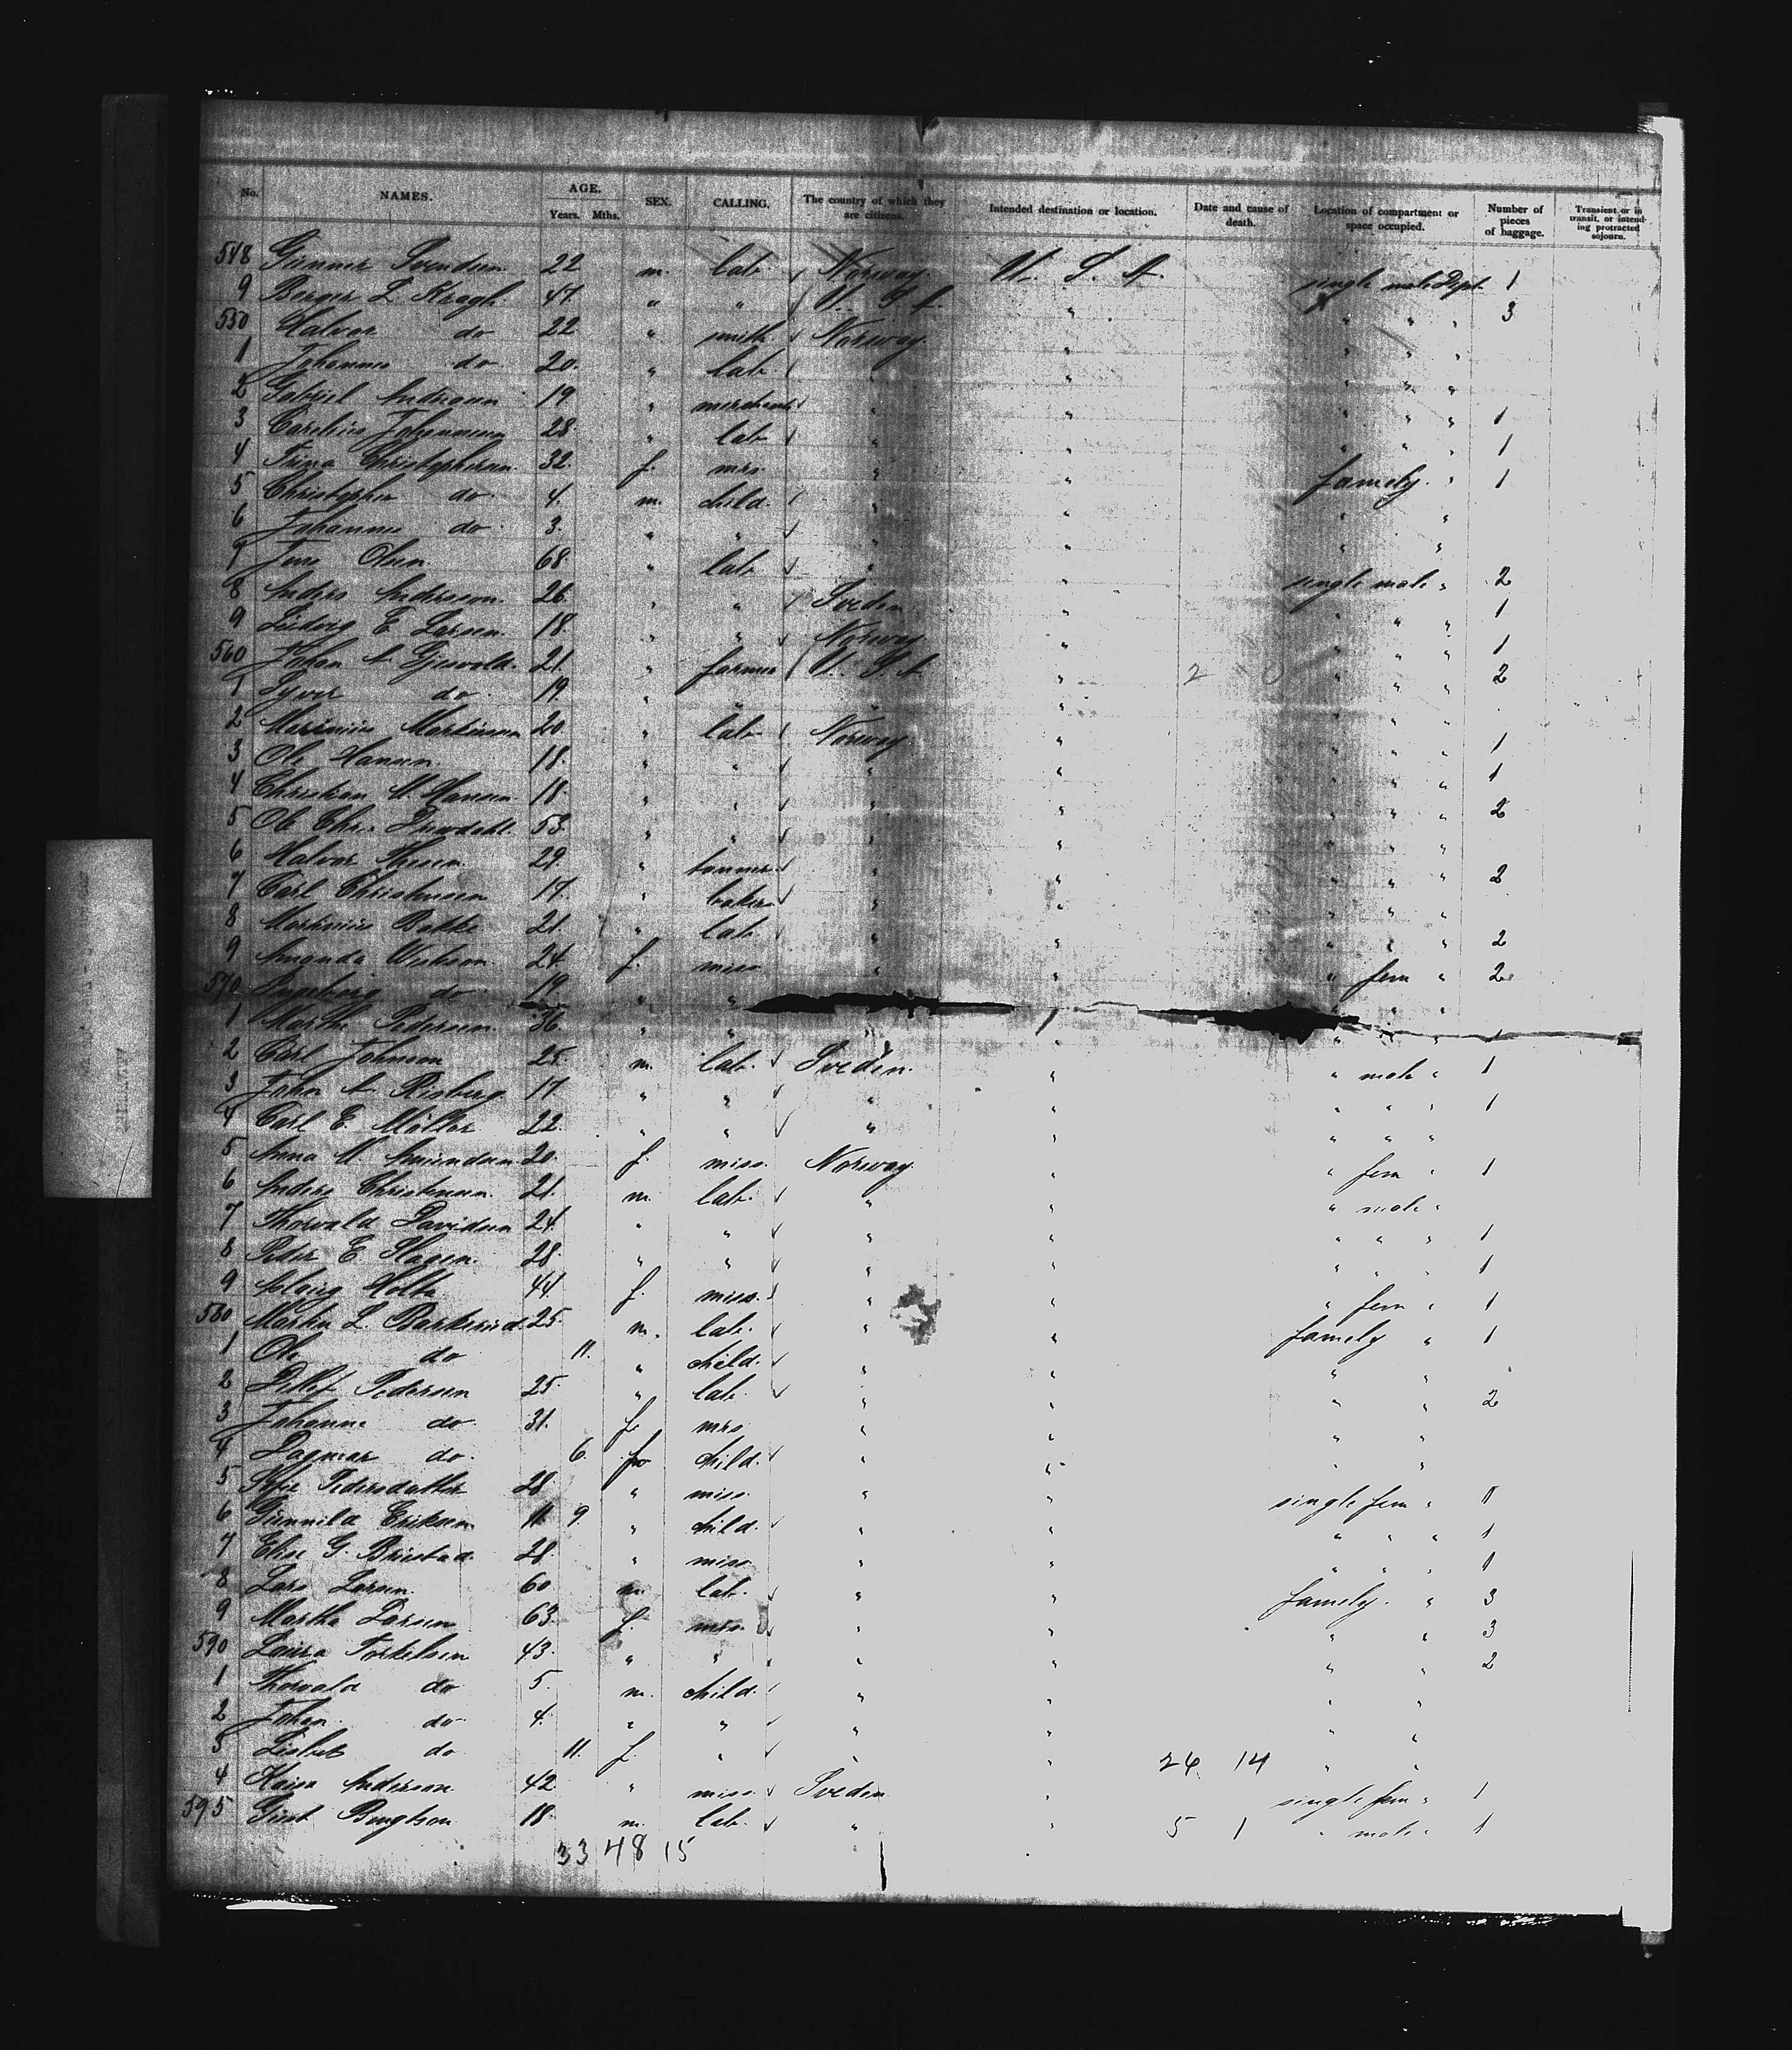 No. NAMES. AGE. Years. Mths. SEX. CALLING. The country of which they are citizens. Intended destination or location. Date and cause of death. Location of compartment or space occupied. Number of pieces of baggage. Transient or in transit, or intending protracted sojourn.
548 Gunner Svendsen. 22 m. lab. Norway. U. S. A. single male Dpt. 1
9 Berger L. Kragh. 47. " " U. S. A. " " " " 3
550 Halvor do 22 " smith. Norway. " " " "
1 Johannes do 20. " lab. " " " " "
2 Gabriel 19 " merchant " " " " " 1
3 28. " lab " " " " " 1
4 Trina Christophersen. 32. f. mrs. " " famely. " 1
5 Christopher do 4. m. child. " " " "
6 Johannes do 3. " " " " " "
7 Jens Olsen 68. " lab " " single male " 2
8 Anders Andersson. 26. " " Sveden " " " " 1
9 Ludvig E. Larsen. 18. " " Norway " " " " 1
560 Johan A. 21. " farmer U. S. A. " 2 0 " " " 2
1 Syver do 19. " " " " " " "
2 Martinsen 20 " lab Norway " " " " 1
3 Ole Hansen. 18. " " " " " " " 1
4 Christian M. Hansen 18. " " " " " " " 2
5 Ole Chr. 53. " " " " " " "
6 Halvor 29. " tanner " " " " " 2
7 Carl Christensen 17. " baker " " " " "
8 Martinius Bakke 21. " lab. " " " " " 2
9 Amanda 24. f. miss " " " fem " 2
570 Ingeborg do 19 " " " "
1 Marthe Pedersen. 36. " " " " " "
2 Carl Johnson 25. m. lab. Sveden. " " male " 1
3 John A. Risberg 17 " " " " " " " 1
4 Carl E. Möller 22. " " " " " " "
5 Anna M. Amundsen 20. f. miss. Norway. " " fem " 1
6 Anders Christensen. 21. m. lab. " " " male "
7 Thorvald Davidsen 24. " " " " " " " 1
8 Peter E. Hagen. 28. " " " " " " " 1
9 Holte 44. f. miss. " " " fem " 1
580 Martin L. 25. m. lab. " " famely " 1
1 Ole do 11. " child. " " " "
2 Ditlef Pedersen 25. " lab. " " " " 2
3 Johanne do 31. f. mrs " " " "
4 Dagmar do. 6. child. " " " "
5 Pedersdatter 28. " miss. " " single fem "
6 Gunnild Eriksen 11. 9. " child. " " " " " 1
7 Elise G. 28. " miss " " " " " 1
8 Lars Larsen. 60 m. lab. " " famely. " 3
9 Marthe Larsen 63. f. mrs. " " " " 3
590 Laura Torkelsen 43. " " " " " " 2
1 Thorvald do 5. m. child. " " " "
2 Johan do 4. " " " " " "
3 Lisbet do 11. f. " " " 24 14 " "
4 Kaisa Anderson 42. " miss. Sveden " single fem " 1
595 Gust Bengtson 18. m. lab. " " 5 1 " male " 1
33 48 15